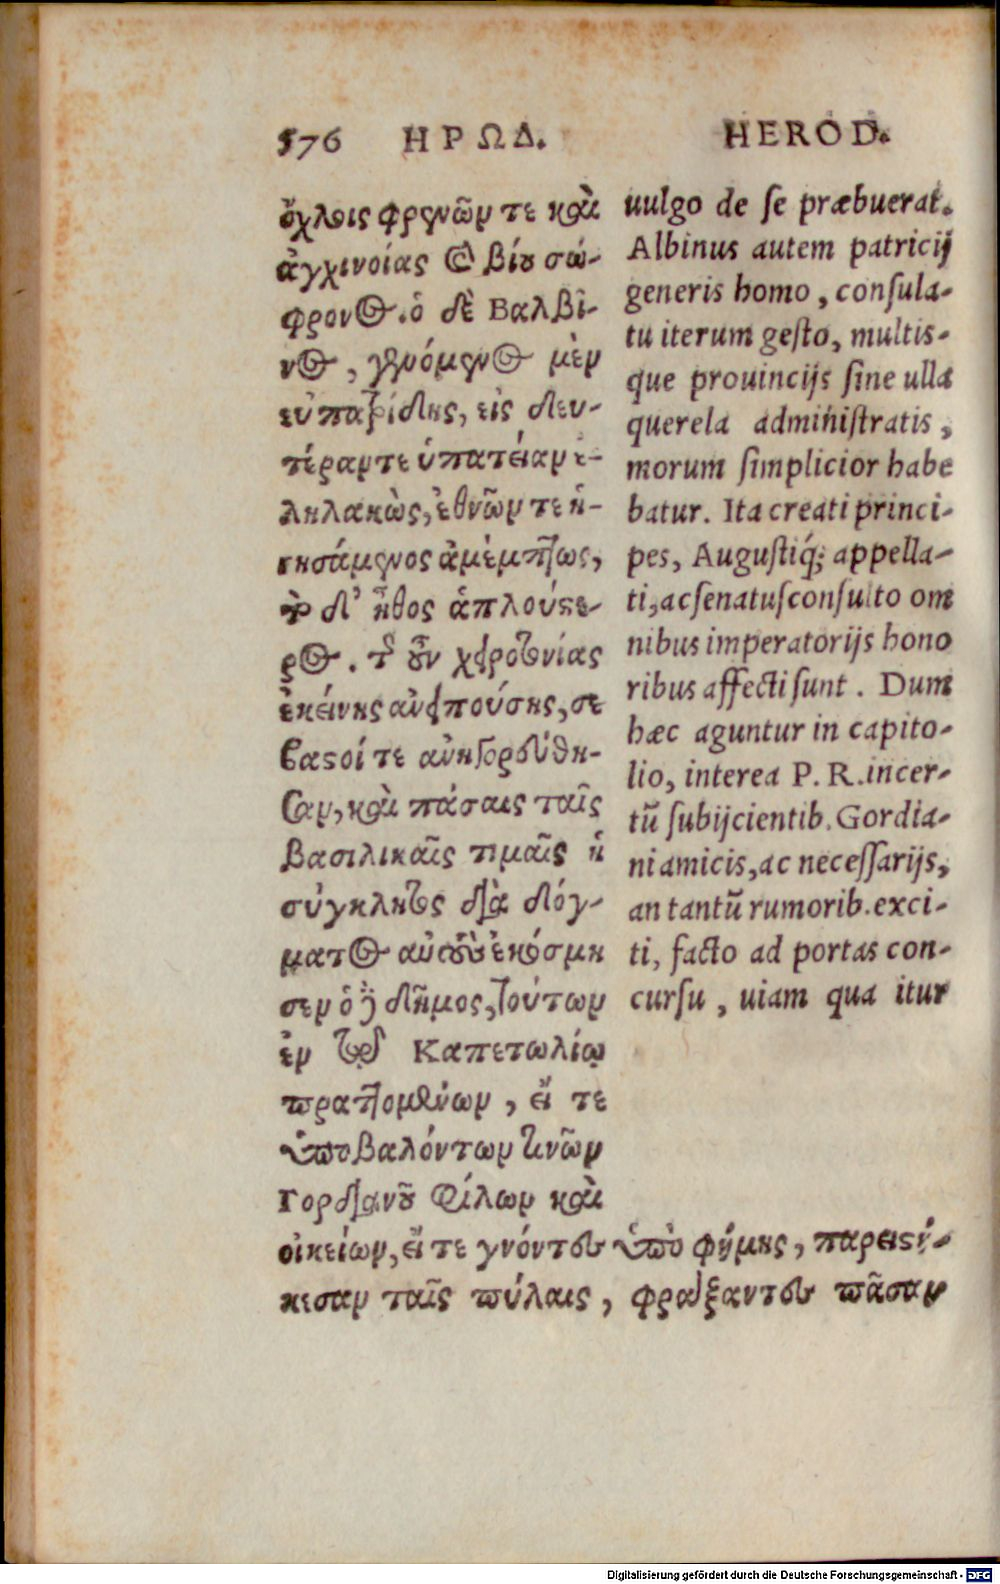 576 ΗΡΩΔ. HEROD.
ὄχλοις φρενῶν τε καὶ
ἀγχινοίας καὶ βίου σώ-
φρονος. ὁ δὲ Βαλβῖ-
νος, γενόμενος μὲν
εὐπατρίδης, εἰς δευ-
τέραν τε ὑπατείαν ἐ-
ληλακὼς, ἐθνῶν τε ἡ-
γησάμενος ἀμέμπτως,
τὸ δ' ἦθος ἁπλούστε-
ρος. τῆς οὖν χειροτονίας
ἐκείνης αὐτεῖ πούσης, σε
βαστοί τε ἀνηγορεύθη-
σαν, καὶ πάσαις ταῖς
βασιλικαῖς τιμαῖς ἡ
σύγκλητος διὰ δόγ-
ματος αὐτοὺς ἐκόσμη
σεν ὁ δὲ δῆμος, τούτων
ἐν τῷ Καπετωλίῳ
πραττομένων, εἴ τε
ὑποβαλόντων τινῶν
Γορδιανοῦ φίλων καὶ
οἰκείων, εἴ τε γνόντες ὑπὸ φήμης, παρειστή-
κεσαν ταῖς πύλαις, φράξαντες πᾶσαν
uulgo de se præbuerat.
Albinus autem patricij
generis homo, consula-
tu iterum gesto, multis-
que prouincijs sine ulla
querela administratis,
morum simplicior habe
batur. Ita creati princi-
pes, Augustiq́; appella-
ti, ac senatusconsulto om
nibus imperatorijs hono
ribus affecti sunt. Dum
hæc aguntur in capito-
lio, interea P. R. incer-
tũ subijcientib. Gordia-
ni amicis, ac necessarijs,
an tantũ rumorib. exci-
ti, facto ad portas con-
cursu, uiam qua itur
Digitalisierung gefördert durch die Deutsche Forschungsgemeinschaft - DFG